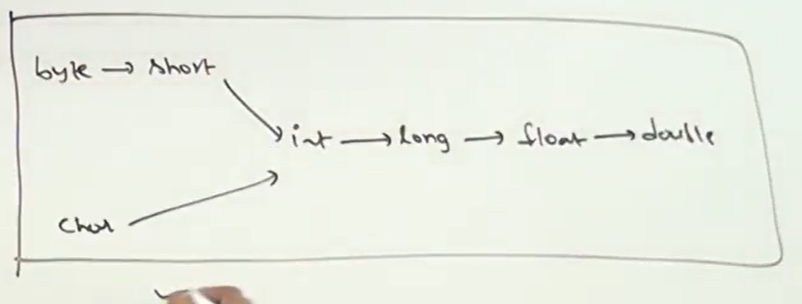 byte → short
int → long → float → double
char